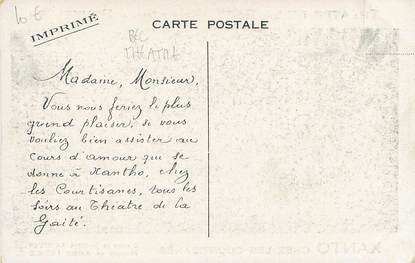 10 €
IMPRIMÉ
CARTE POSTALE
THEATRE
Madame, Monsieur,
Vous nous feriez le plus
grand plaisir, si vous
vouliez bien assister au
cours d'amour qui se
donne à Xantho, chez
les Courtisanes, tous les
soirs au Théatre de la
Gaité.
XANTO CHEZ LES COURTISANES